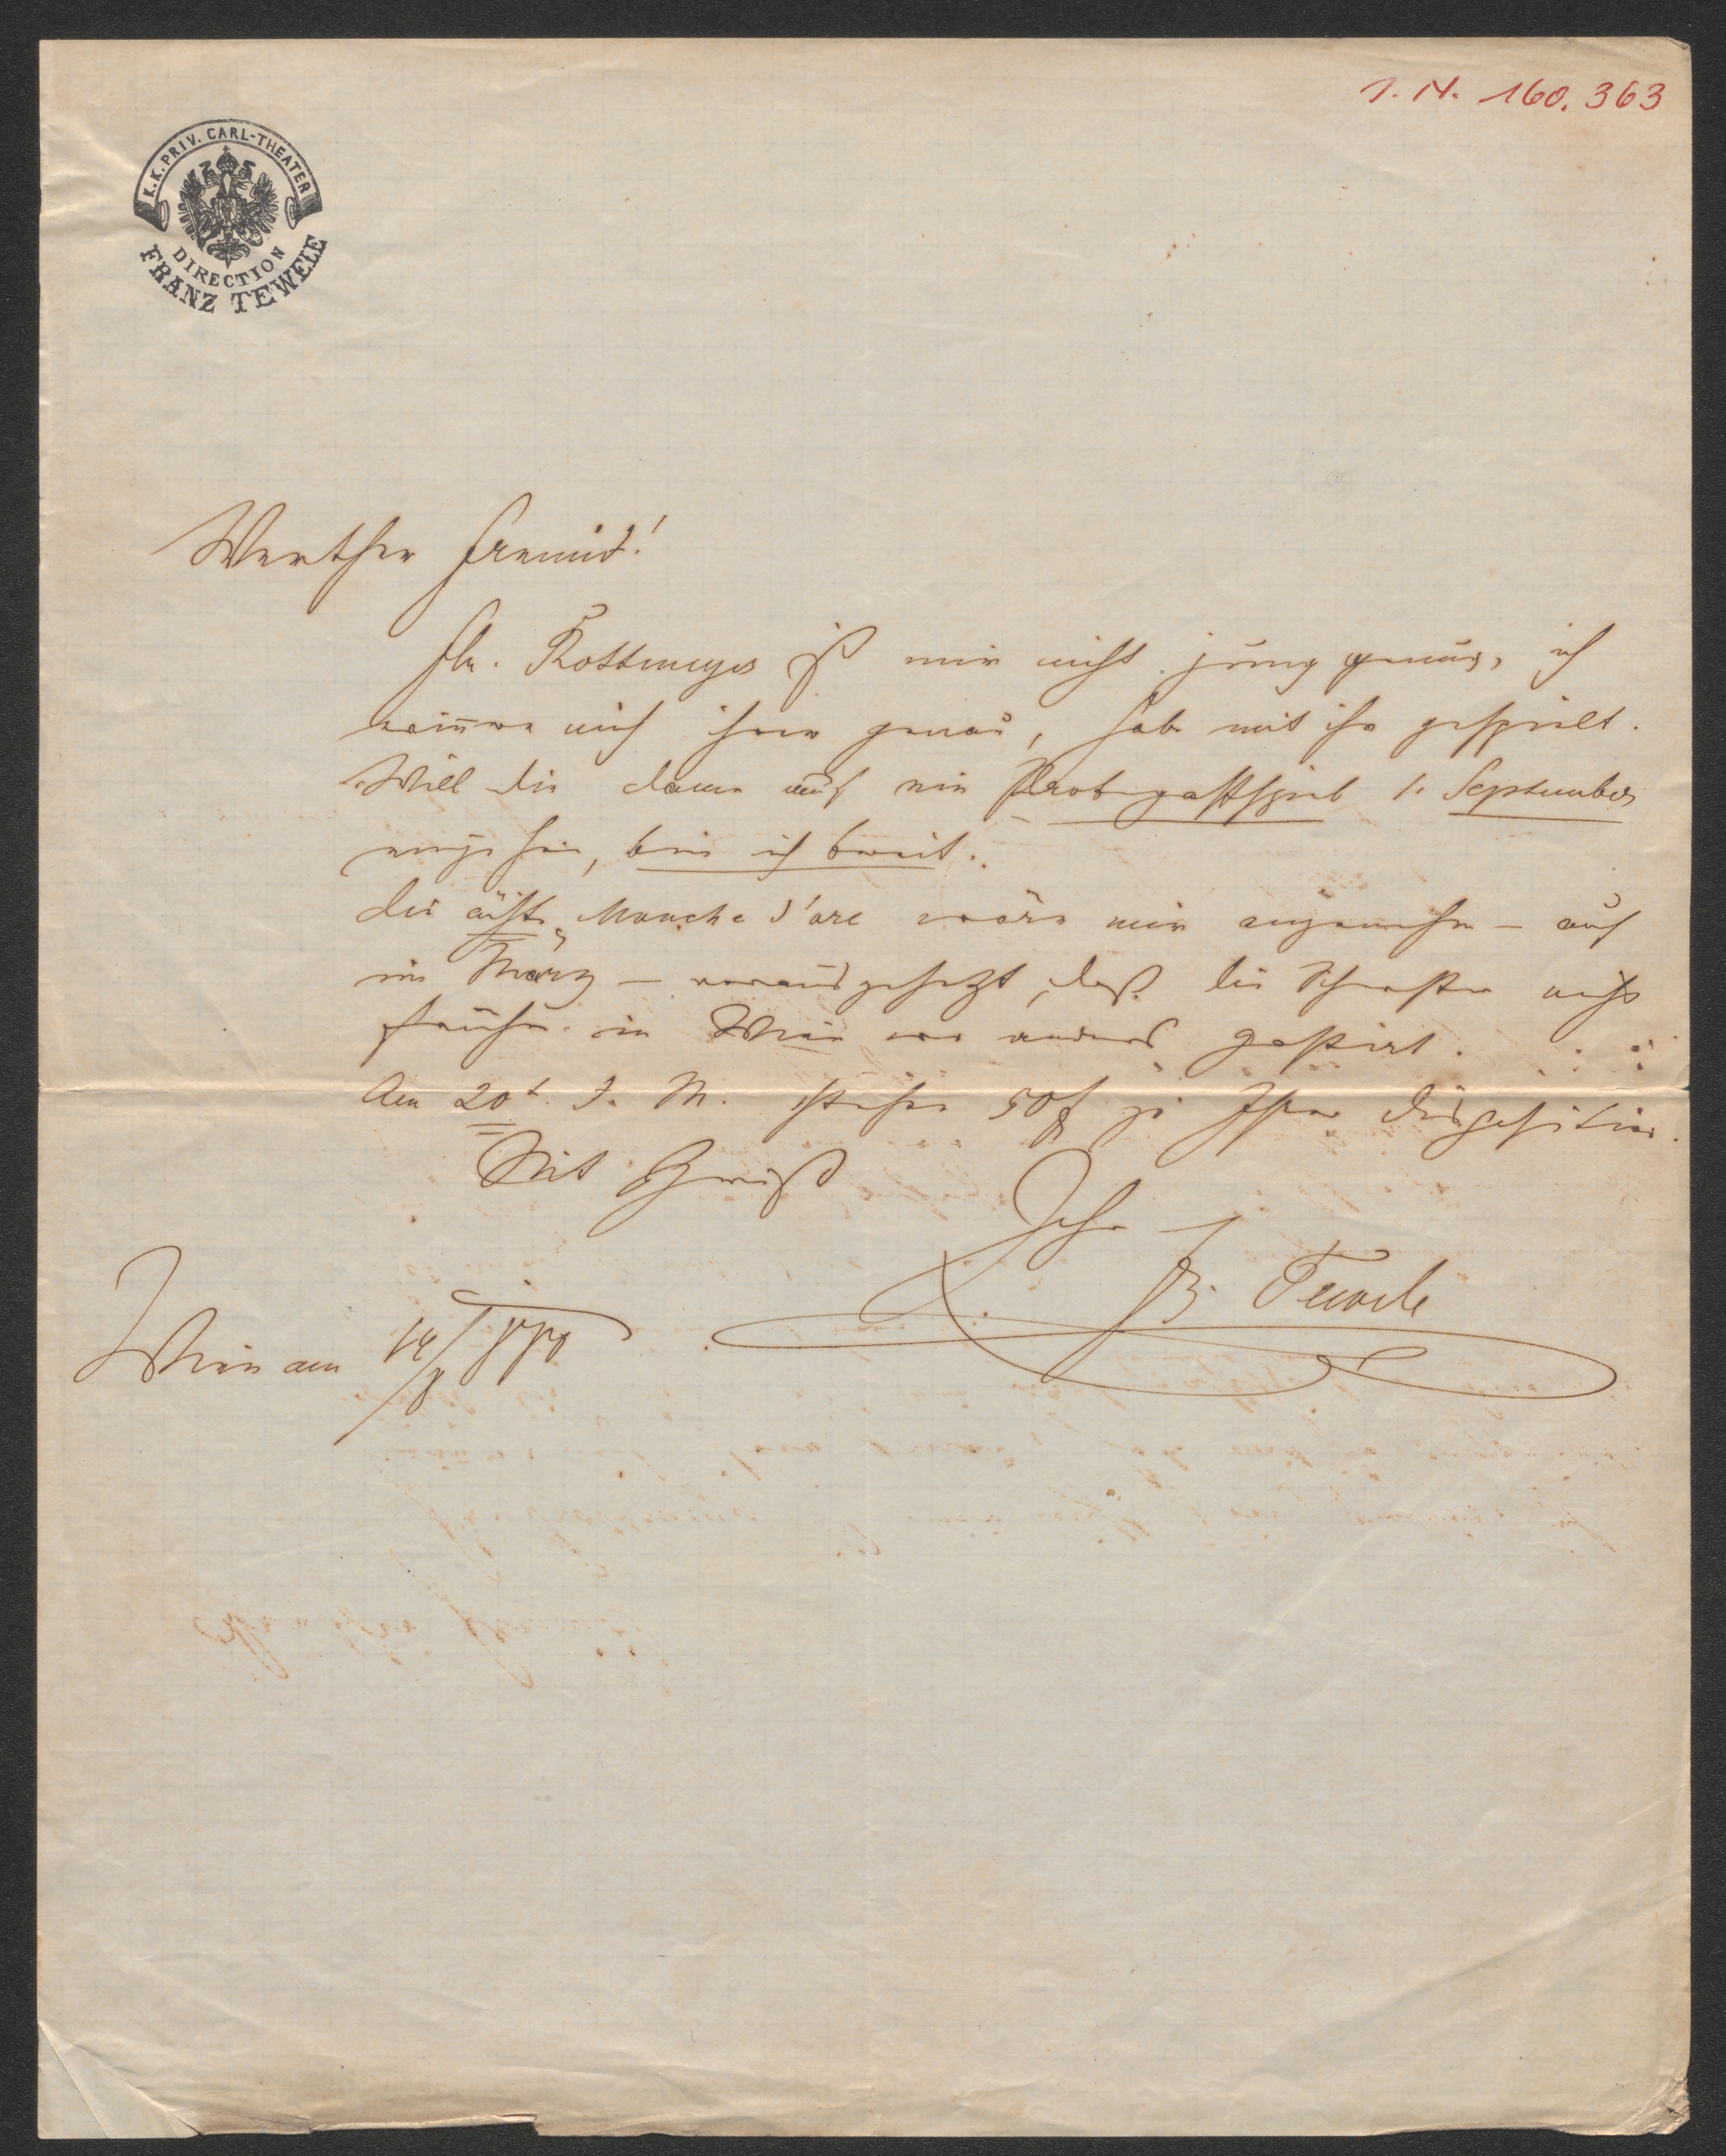 I. N. 160.363
K.K. PRIV. CARL-THEATER
DIRECTION
FRANZ TEWELE
Werther Freund!
Frl. Rottmeyer ist mir nicht jung genug, ich
genau, habe mit ihr gespielt.
Will die Dame auf ein Probegastspiel 1. September
eingehen, bin ich bereit.
Die erste Jeanne d'arc wäre mir angenehm – auch
im März – vorausgesetzt, daß die nicht
früher in Wien wo anders gastirt.
Am 20t. d. M. stehen 50 f zu Ihrer Disposition.
Mit Gruß
Ihr
Fz. Tewele
Wien am 14/8 880